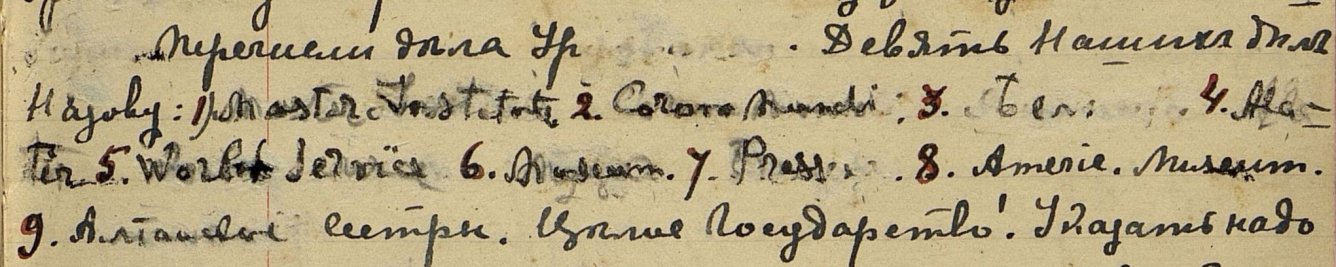 Перечисли дѣла Ур . Девять Нашихъ дѣлъ
Назову: 1) Master Institute, 2. Corona Mundi; 3. Белу . 4. Ala-
tir 5. World Service 6. Museum. 7. Press . 8. Americ. Museum.
9. Алтайские сестры. Цѣлые Государство! Указать надо